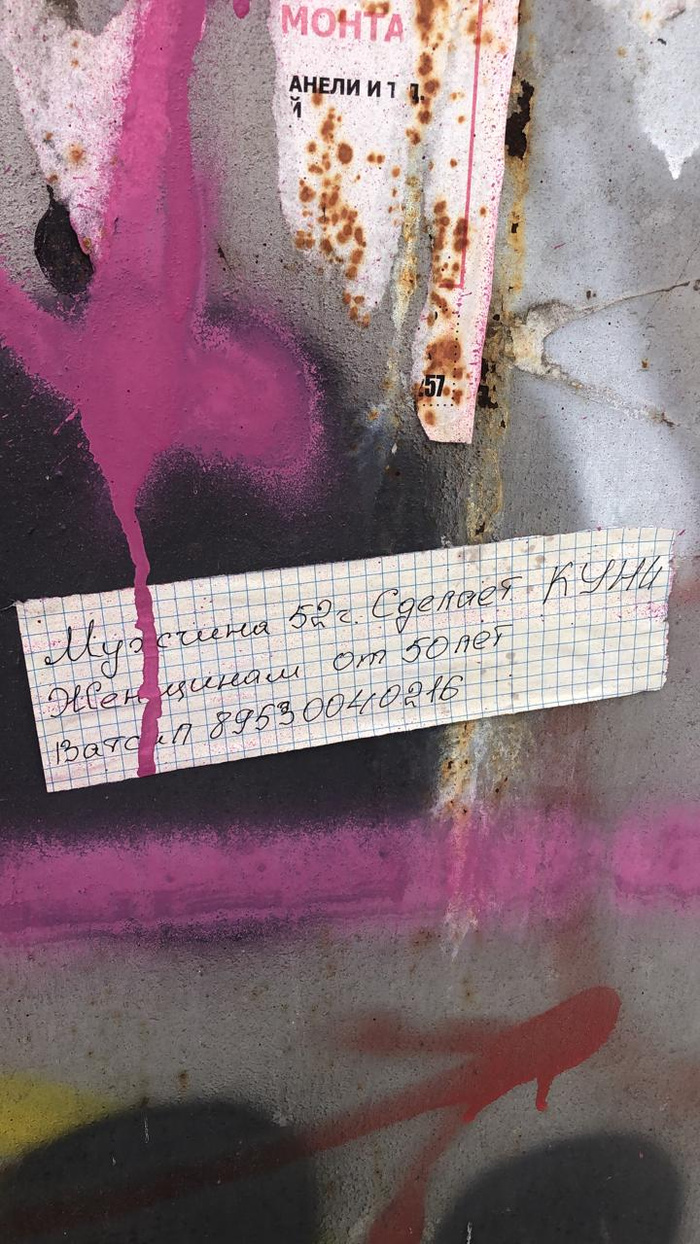 МОНТА
АНЕЛИ И Т Д.
Й
257
Мужчина 52г. Сделает КУНИ
Женщинам от 50 лет
Ватсап 89530040216